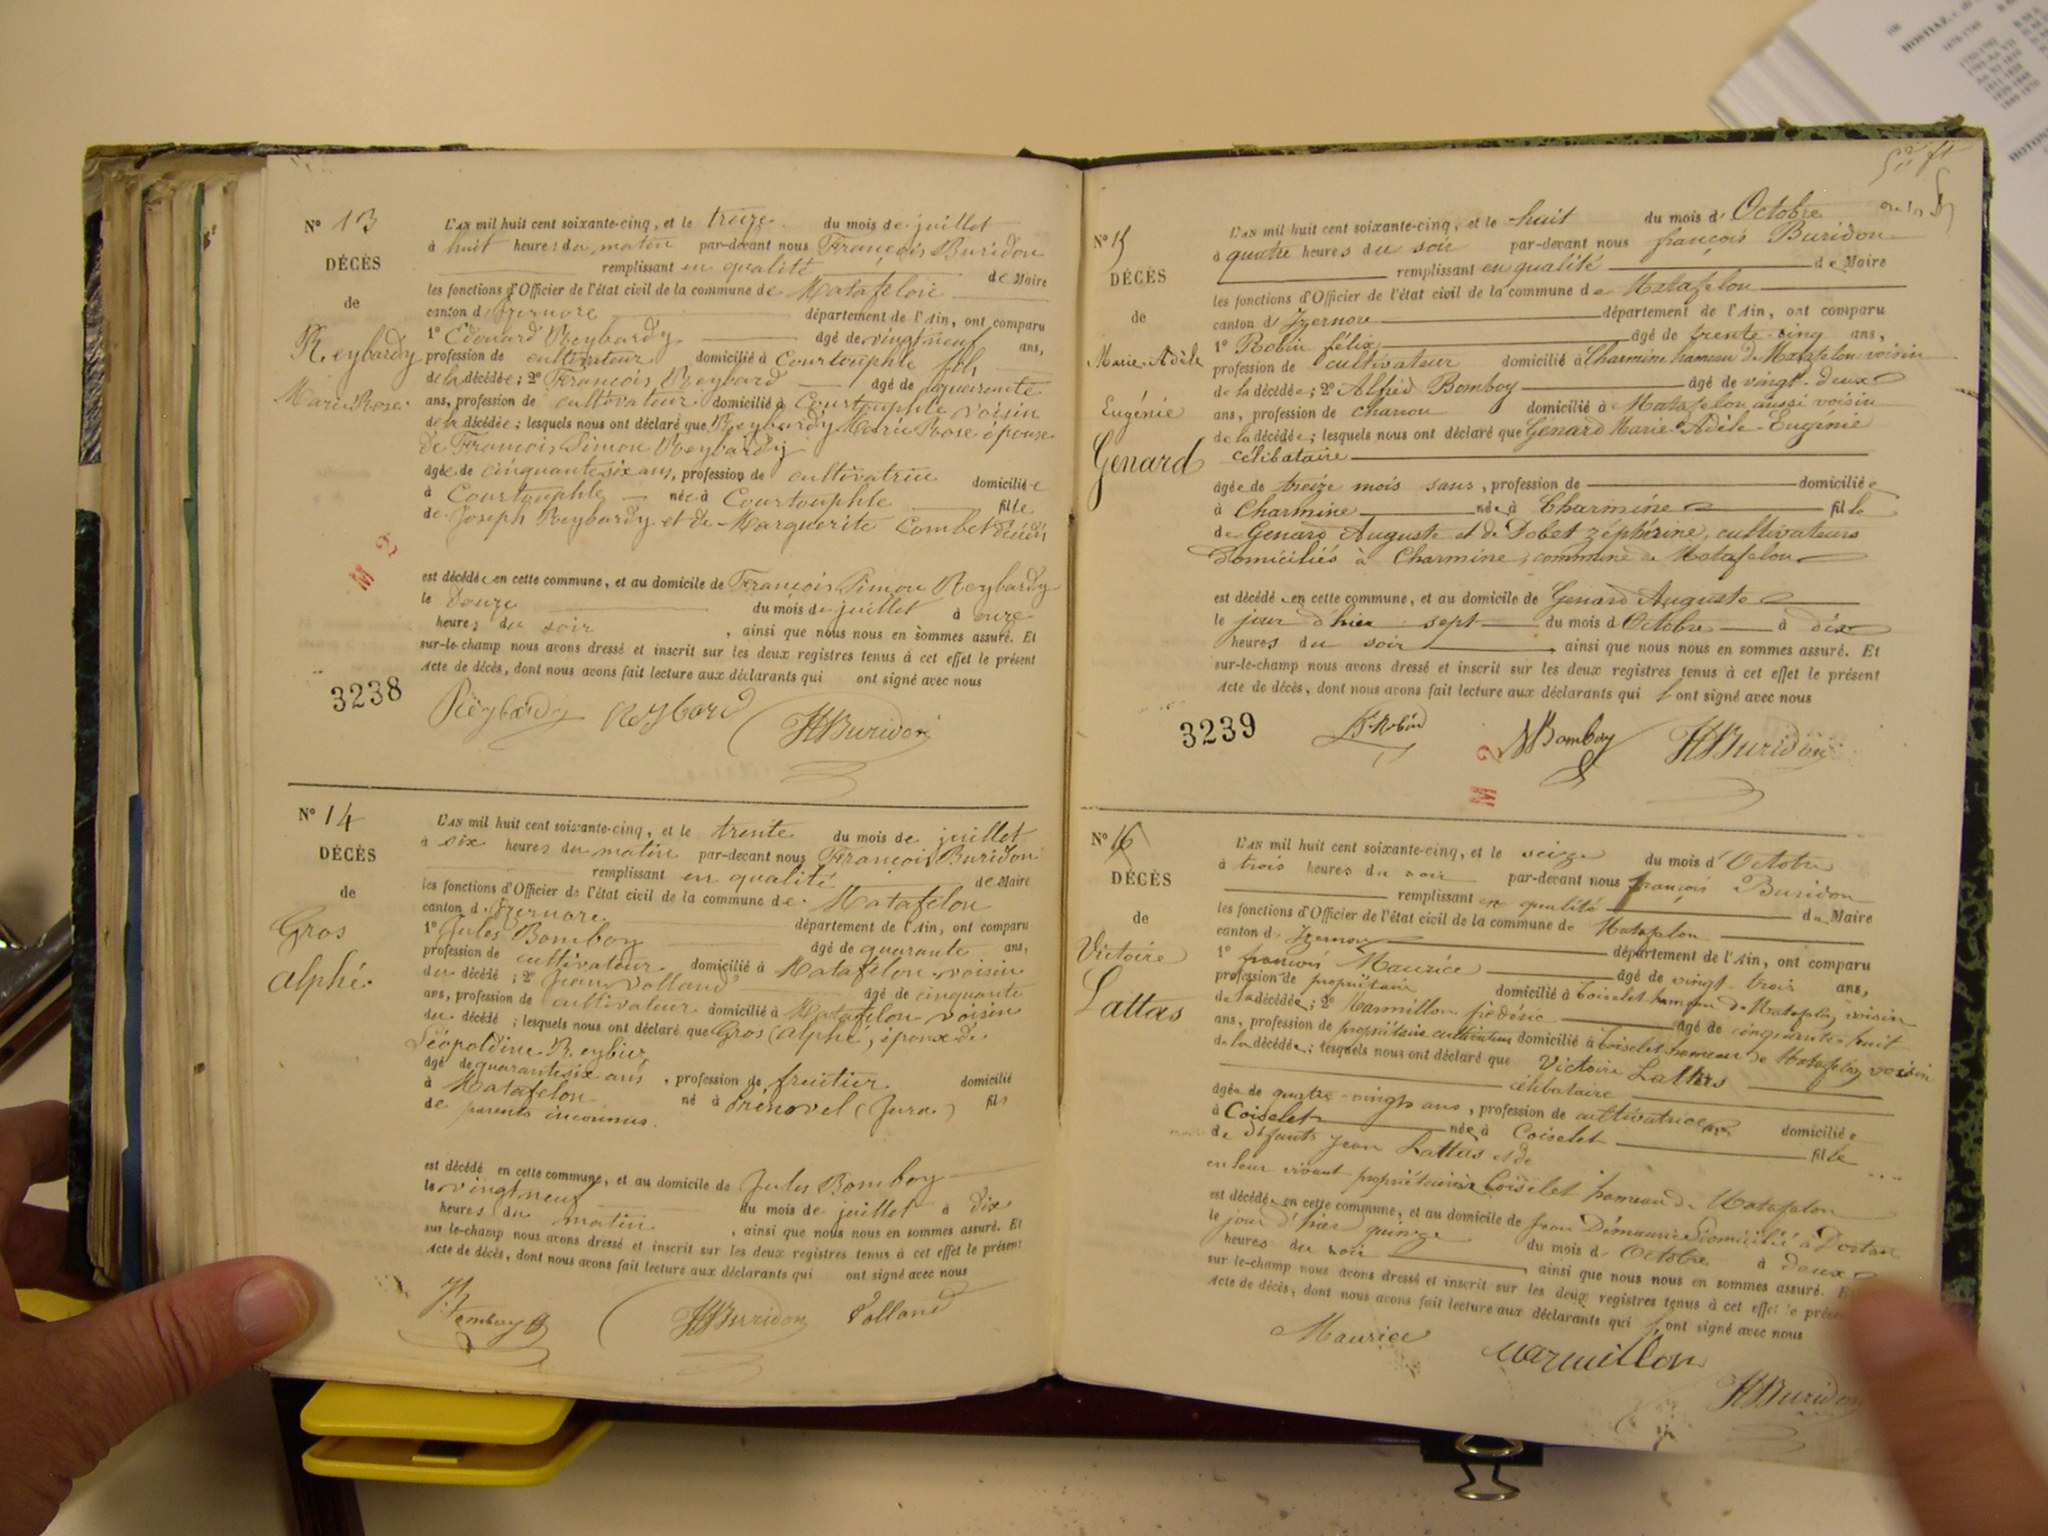 N° 13
DÉCÈS
de
Reybardy
Marie Rose
L'AN mil huit cent soixante-cinq, et le treize du mois de juillet
à huit heures du matin par-devant nous François Buridon
remplissant en qualité de Maire
les fonctions d'Officier de l'état civil de la commune de Matafelon
canton d'Izernore département de l'Ain, ont comparu
1° Edouard Reybardy âgé de vingt neuf ans,
profession de cultivateur domicilié à Courtouphle fils
de la décédée; 2° François Reybard âgé de quarante
ans, profession de cultivateur domicilié à Courtouphle voisin
de la décédée; lesquels nous ont déclaré que Reybardy Marie Rose épouse
de François Simon Reybardy
âgée de cinquante six ans, profession de cultivatrice domiciliée
à Courtouphle née à Courtouphle fille
de Joseph Reybardy et de Marguerite Combet
est décédée en cette commune, et au domicile de François Simon Reybardy
le douze du mois de juillet à onze
heures du soir, ainsi que nous nous en sommes assuré. Et
sur-le-champ nous avons dressé et inscrit sur les deux registres tenus à cet effet le présent
Acte de décès, dont nous avons fait lecture aux déclarants qui ont signé avec nous
3238
Reybardy Reybard Buridon
M 2
N° 14
DÉCÈS
de
Gros
alphé
L'AN mil huit cent soixante-cinq, et le trente du mois de juillet
à six heures du matin par-devant nous François Buridon
remplissant en qualité de Maire
les fonctions d'Officier de l'état civil de la commune de Matafelon
canton d'Izernore département de l'Ain, ont comparu
1° Jules Bomboy âgé de quarante ans,
profession de cultivateur domicilié à Matafelon voisin
du décédé; 2° Jean Volland âgé de cinquante
ans, profession de cultivateur domicilié à Matafelon voisin
du décédé; lesquels nous ont déclaré que Gros alphé, époux de
Léopoldine
âgé de quarante six ans, profession de fruitier domicilié
à Matafelon né à Prénovel (Jura) fils
de parents inconnus.
est décédé en cette commune, et au domicile de Jules Bomboy
le vingt neuf du mois de juillet à dix
heures du matin, ainsi que nous nous en sommes assuré. Et
sur le-champ nous avons dressé et inscrit sur les deux registres tenus à cet effet le présent
Acte de décès, dont nous avons fait lecture aux déclarants qui ont signé avec nous
Bomboy Buridon Volland
N° 15
DÉCÈS
de
Marie-Adèle
Eugénie
Genard
L'AN mil huit cent soixante-cinq, et le huit du mois d'Octobre
à quatre heures du soir par-devant nous françois Buridon
remplissant en qualité de Maire
les fonctions d'Officier de l'état civil de la commune de Matafelon
canton d'Izernore département de l'Ain, ont comparu
1° Robin félix âgé de trente-cinq ans,
profession de cultivateur domicilié à Charmine hameau de Matafelon voisin
de la décédée; 2° Alfred Bomboy âgé de vingt-deux
ans, profession de charron domicilié à Matafelon aussi voisin
de la décédée; lesquels nous ont déclaré que Genard Marie-Adèle-Eugénie
célibataire
âgée de treize mois sans, profession de domiciliée
à Charmine née à Charmine fille
de Genard Auguste et de Dobet zéphirine, cultivateurs
domiciliés à Charmine, commune de Matafelon
est décédée en cette commune, et au domicile de Genard Auguste
le jour d'hier sept du mois d'Octobre à dix
heures du soir ainsi que nous nous en sommes assuré. Et
sur-le-champ nous avons dressé et inscrit sur les deux registres tenus à cet effet le présent
Acte de décès, dont nous avons fait lecture aux déclarants qui ont signé avec nous
3239
Robin Bomboy Buridon
M 2
N° 16
DÉCÈS
de
Victoire
Lattas
L'AN mil huit cent soixante-cinq, et le seize du mois d'Octobre
à trois heures du soir par-devant nous françois Buridon
remplissant en qualité du Maire
les fonctions d'Officier de l'état civil de la commune de Matafelon
canton d'Izernore département de l'Ain, ont comparu
1° françois Maurice âgé de vingt-trois ans,
profession de propriétaire domicilié à Coiselet hameau de Matafelon, voisin
de la décédée; 2° Marmillon fréderic âgé de cinquante-huit
ans, profession de propriétaire cultivateur domicilié à Coiselet hameau de Matafelon voisin
de la décédée; lesquels nous ont déclaré que Victoire Lattas
célibataire
âgée de quatre-vingts ans, profession de cultivatrice domiciliée
à Coiselet née à Coiselet fille
de défunts Jean Lattas et de
en leur vivant propriétaires à Coiselet hameau de Matafelon
est décédée en cette commune, et au domicile de Jean Démaurie domicilié à Dortan
le jour d'hier quinze du mois d'Octobre à deux
heures du soir, ainsi que nous nous en sommes assuré.
sur le-champ nous avons dressé et inscrit sur les deux registres tenus à cet effet le
Acte de décès, dont nous avons fait lecture aux déclarants qui ont signé avec nous
Maurice Marmillon
Buridon